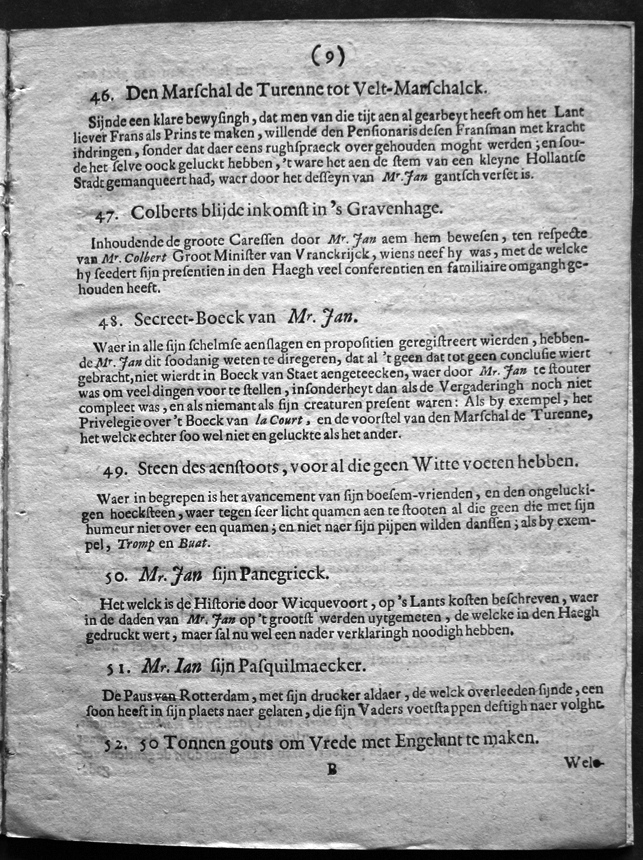 (9)
46. Den Marſchal de Turenne tot Velt-Marſchalck.
Sijnde een klare bewyſingh, dat men van die tijt aen al gearbeyt heeft om het Lant
liever Frans als Prins te maken, willende den Penſionaris deſen Franſman met kracht
indringen, ſonder dat daer eens rughſpraeck over gehouden moght werden; en ſou-
de het ſelve oock geluckt hebben, 't ware het aen de ſtem van een kleyne Hollantſe
Stadt gemanqueert had, waer door het deſſeyn van Mr. Jan gantſch verſet is.
47. Colberts blijde inkomſt in 's Gravenhage.
Inhoudende de groote Careſſen door Mr. Jan aem hem beweſen, ten reſpecte
van Mr. Colbert Groot Miniſter van Vranckrijck, wiens neef hy was, met de welcke
hy ſeedert ſijn preſentien in den Haegh veel conferentien en familiaire omgangh ge-
houden heeft.
48. Secreet-Boeck van Mr. Jan.
Waer in alle ſijn ſchelmſe aenſlagen en propoſitien geregiſtreert wierden, hebben-
de Mr. Jan dit ſoodanig weten te diregeren, dat al 't geen dat tot geen concluſie wiert
gebracht, niet wierdt in Boeck van Staet aengeteecken, waer door Mr. Jan te ſtouter
was om veel dingen voor te ſtellen, inſonderheyt dan als de Vergaderingh noch niet
compleet was, en als niemant als ſijn creaturen preſent waren: Als by exempel, het
Privelegie over 't Boeck van la Court, en de voorſtel van den Marſchal de Turenne,
het welck echter ſoo wel niet en geluckte als het ander.
49. Steen des aenſtoots, voor al die geen Witte voeten hebben.
Waer in begrepen is het avancement van ſijn boeſem-vrienden, en den ongelucki-
gen hoeckſteen, waer tegen ſeer licht quamen aen te ſtooten al die geen die met ſijn
humeur niet over een quamen; en niet naer ſijn pijpen wilden danſſen; als by exem-
pel, Tromp en Buat.
50. Mr. Jan ſijn Panegrieck.
Het welck is de Hiſtorie door Wicquevoort, op 's Lants koſten beſchreven, waer
in de daden van Mr. Jan op 't grootſt werden uytgemeten, de welcke in den Haegh
gedruckt wert, maer ſal nu wel een nader verklaringh noodigh hebben.
51. Mr. Ian ſijn Paſquilmaecker.
De Paus van Rotterdam, met ſijn drucker aldaer, de welck overleeden ſijnde, een
ſoon heeft in ſijn plaets naer gelaten, die ſijn Vaders voetſtappen deftigh naer volght.
52. 50 Tonnen gouts om Vrede met Engelant te maken.
B
Wel-